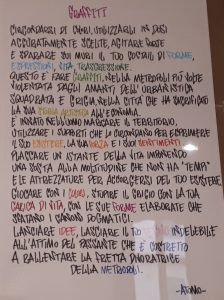 GRAFFITI
CIRCONDARSI DI COLORI, UTILIZZARLI IN DOSI
ACCURATAMENTE SCELTE, AGITARE FORTE
E SPARARE SUI MURI IL TUO COCTAIL DI FORME,
ESPRESSIONI, VITA, TRASGRESSIONE.
QUESTO È FARE GRAFFITI, NELLA METROPOLI PIÙ VOLTE
VIOLENTATA DAGLI AMANTI DELL'URBANISTICA
SQUADRATA E GRIGIA, NELLA CITTÀ CHE HA SACRIFICATO
LA SUA ARTISTICA ALL'ECONOMIA.
È INNATO NELL'UOMO MARCARE IL TERRITORIO,
UTILIZZARE I SUPPORTI CHE LO CIRCONDANO PER ESPRIMERE
IL SUO ESISTERE, LA SUA FORZA E I SUOI SENTIMENTI
PLACCARE UN ISTANTE DELLA VITA IMPONENDO
UNA SOSTA ALLA MOLTITUDINE CHE NON HA "TEMPI"
E LE ATTREZZATURE PER ACCORGERSI DEL TUO ESISTERE,
GIOCARE CON I COLORI, STUPIRE IL GRIGIO CON LA TUA
CARICA DI VITA, CON LE SUE FORME ELABORATE CHE
SFATANO I CANONI DOGMATICI.
LANCIARE IDEE, LASCIARE IL TUO INDELEBILE
ALL'ATTIMO DEL PASSANTE CHE È COSTRETTO
A RALLENTARE LA FRETTA DIVORATRICE
DELLA METROPOLI.